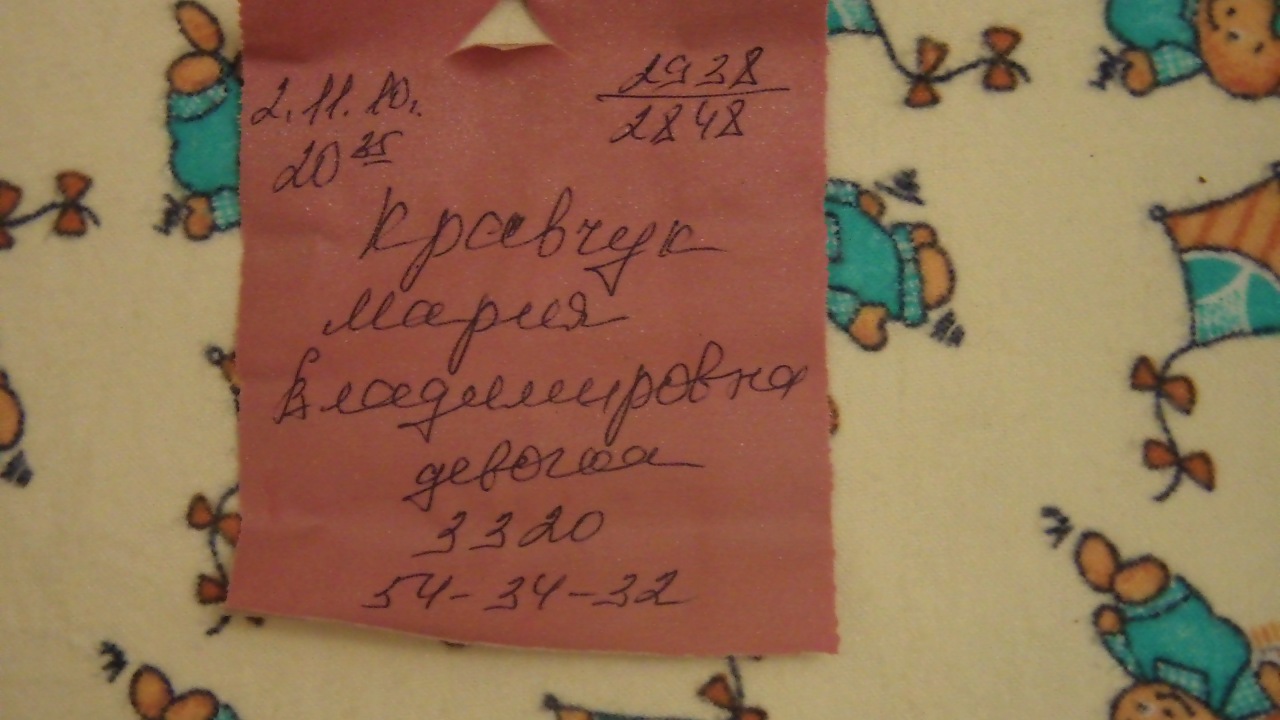 2.11.10г.
2938
2848
20 25
Кравчук
Мария
Владимировна
девочка
3320
54-34-32